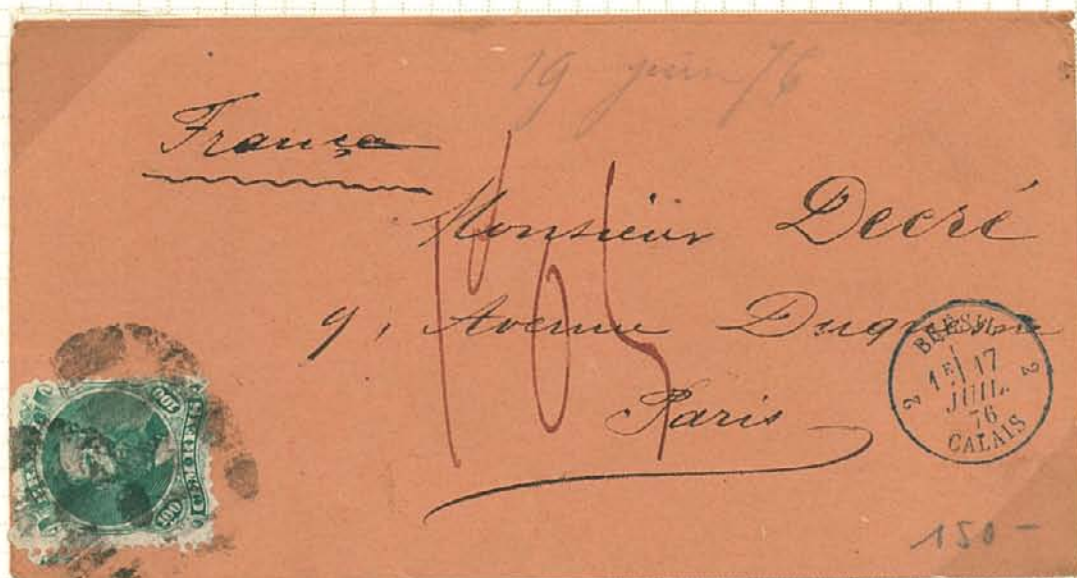 19 juin 76
França
Monsieur Decré
9, Avenue Duquesne
Paris
165
BRESIL
2 1E/ 17 2
JUIL.
76
CALAIS
100
100
150 -